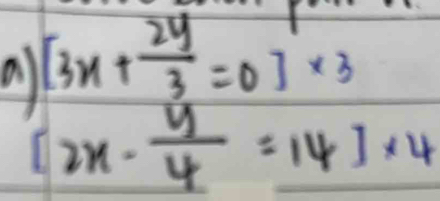 a) [3x + 2y/3 = 0] × 3
[2x - y/4 = 14] × 4